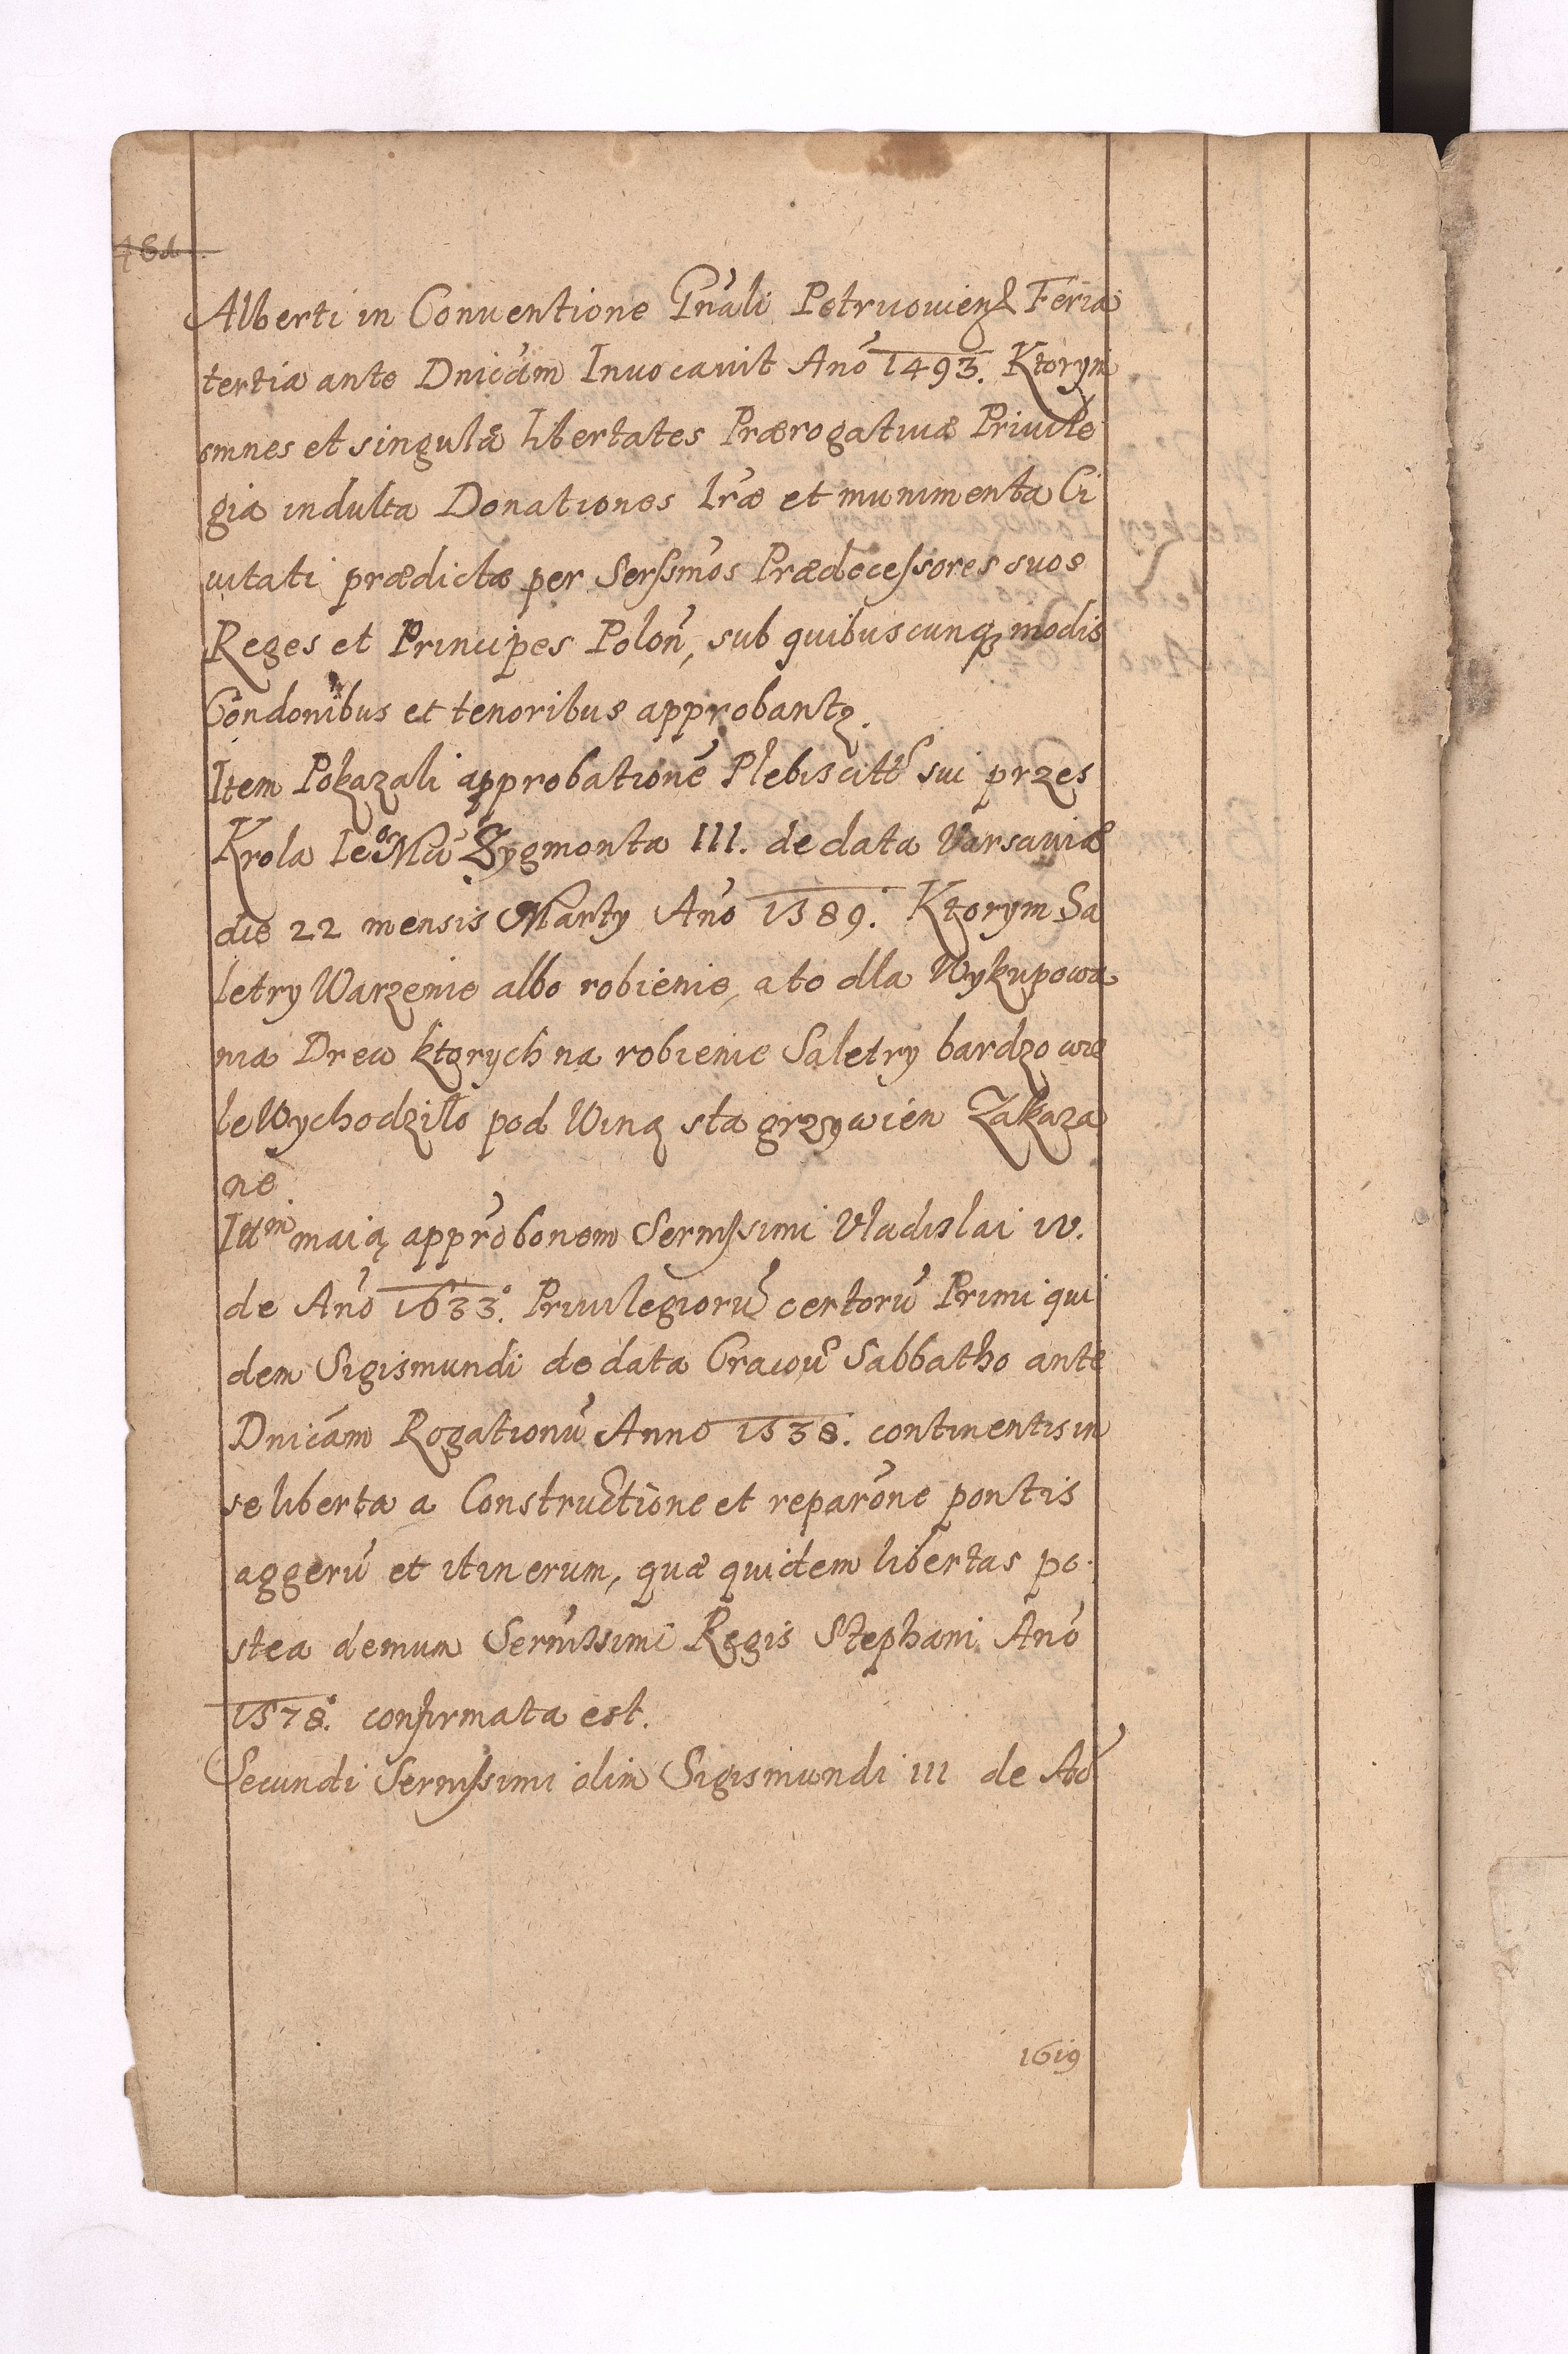 Alberti in Conuentione Gnãli Petrvouien Feria
tertia ante Dnicam Inuocauit Ano 1493. Ktorym
omnes et singulæ libertates Prærogatiuæ Priuile
gia indulta Donationes lræ et munimenta Ci
uitati prædictæ per Serssmos Prædecessores suos
Reges et Principes Polon, sub quibuscunq modis
Condonibus et tenoribus approbantq.
Item Pokazali approbatione Plebiscitt sui przes
Krola Ieo Mci Zygmonta III. de data Varsauiæ
die 22 mensis Marty Ano 1589. Ktorym Sa
letry Warzenie albo robienie, a to dla Wykupowa
nia Drew ktorych na robienie Saletry bardzo wie
le Wychodziło pod Winą sta grzywien Zakaza
ne.
Ittm maią approbonem Sernissimi Vladislai IV.
de Ano 1633. Priuilegioru certoru Primi qui
dem Sigismundi de data Cracou Sabbatho ante
Dnicam Rogationu Anno 1538. continentis in
se liberta a Constructione et reparone pontis
aggeru et itinerum, quæ quidem libertas po
stea demum Sernissimi Regis Stephani Ano
1578. confirmata est.
Secundi Sernissimi olim Sigismundi III de Ao
1619